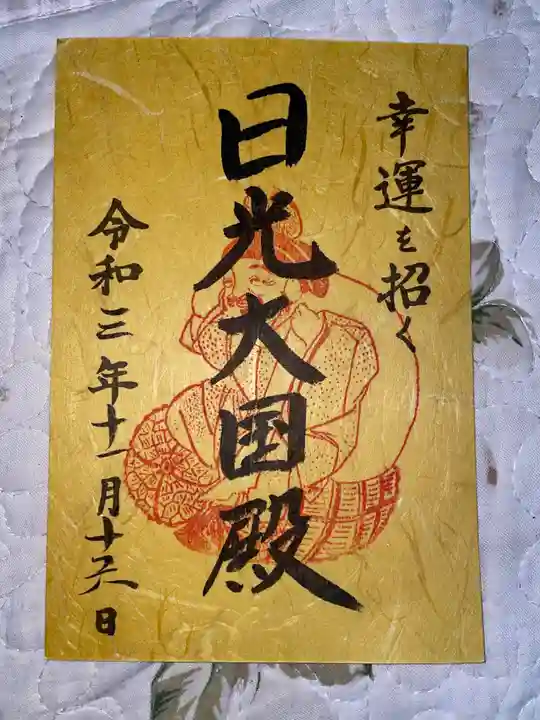 幸運を招く
日光大国殿
令和三年十一月十六日